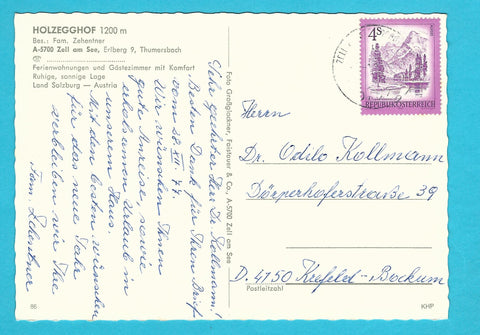 HOLZEGGHOF 1200 m
Bes.: Fam. Zehentner
A-5700 Zell am See, Erlberg 9, Thumersbach
Ferienwohnungen und Gästezimmer mit Komfort
Ruhige, sonnige Lage
Land Salzburg — Austria
Sehr geehrter Herr Dr. Kollmann!
Besten Dank für Ihren Brief
vom 28. XII. 77.
Wir wünschen Ihnen
gute Anreise, sowie
erholsamen Urlaub in
unserem Haus.
Mit den besten Wünschen
für das neue Jahr
verbleiben wir Ihre
Fam. Zehentner
Foto Großglockner, Faistauer & Co., A-5700 Zell am See
4 S
REPUBLIK ÖSTERREICH
Herrn
Dr. Odilo Kollmann
Dörperhofstraße 39
D. 4150 Krefeld-Bockum
Postleitzahl
86
KHP